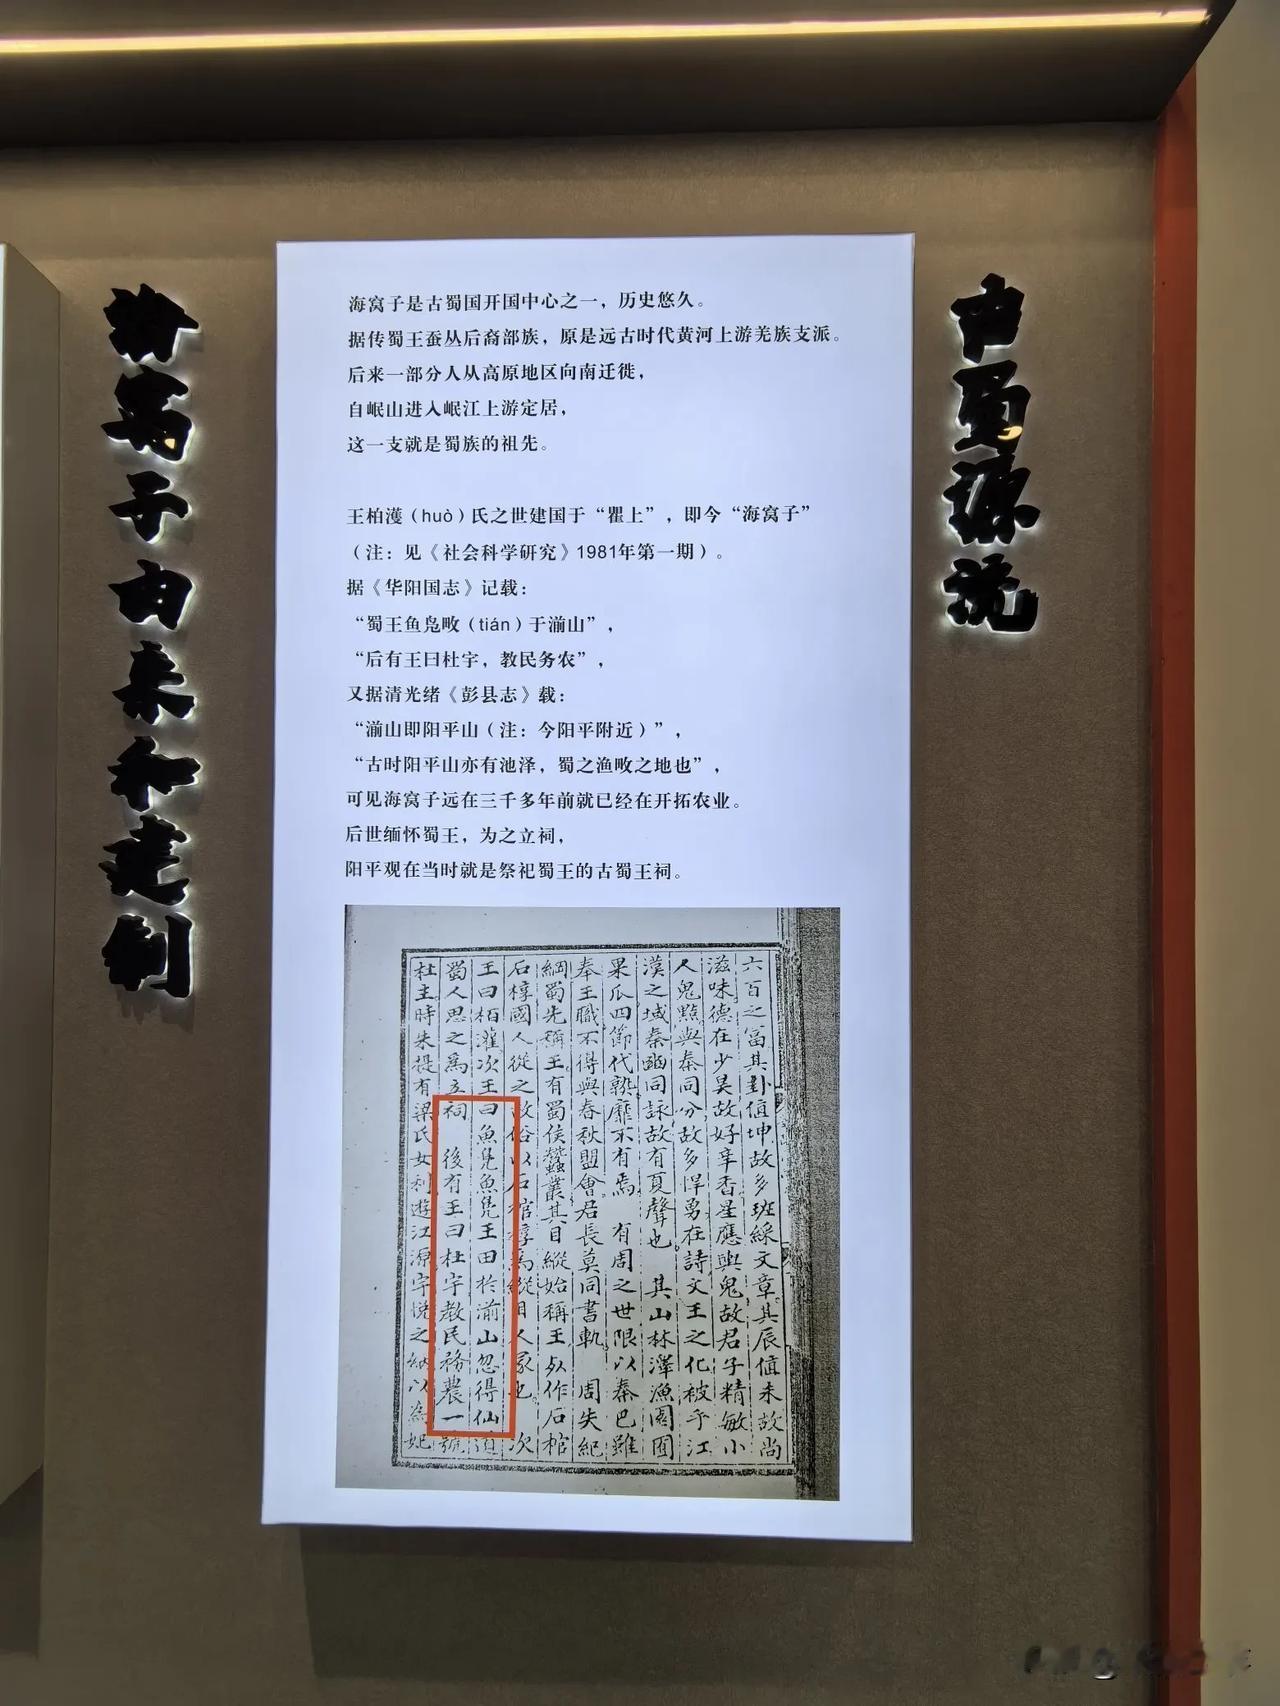 古蜀源流
海窝子由来和建制
海窝子是古蜀国开国中心之一，历史悠久。
据传蜀王蚕丛后裔部族，原是远古时代黄河上游羌族支派。
后来一部分人从高原地区向南迁徙，
自岷山进入岷江上游定居，
这一支就是蜀族的祖先。
王柏濩（huò）氏之世建国于“瞿上”，即今“海窝子”
（注：见《社会科学研究》1981年第一期）。
据《华阳国志》记载：
“蜀王鱼凫畋（tián）于湔山”，
“后有王曰杜宇，教民务农”，
又据清光绪《彭县志》载：
“湔山即阳平山（注：今阳平附近）”，
“古时阳平山亦有池泽，蜀之渔畋之地也”，
可见海窝子远在三千多年前就已经在开拓农业。
后世缅怀蜀王，为之立祠，
阳平观在当时就是祭祀蜀王的古蜀王祠。
六百之富其卦值坤故多班綵文章其辰值未故尚
滋味德在少昊故好辛香星應輿鬼故君子精敏小
人鬼黠與秦同分故多悍勇在詩文王之化被乎江
漢之域秦豳同詠故有夏聲也 其山林澤漁園囿
果瓜四節代熟靡不有焉 有周之世限以秦巴雖
奉王職不得與春秋盟會君長莫同書軌 周失紀
綱蜀先稱王有蜀侯蠶叢其目縱始稱王死作石棺
石椁國人從之故俗以石棺椁爲縱目人冢也 次
王曰栢灌次王曰魚鳧魚鳧王田於湔山忽得仙道
蜀人思之爲立祠 後有王曰杜宇教民務農一號
杜主時朱提有梁氏女利遊江源宇悅之納以爲妃